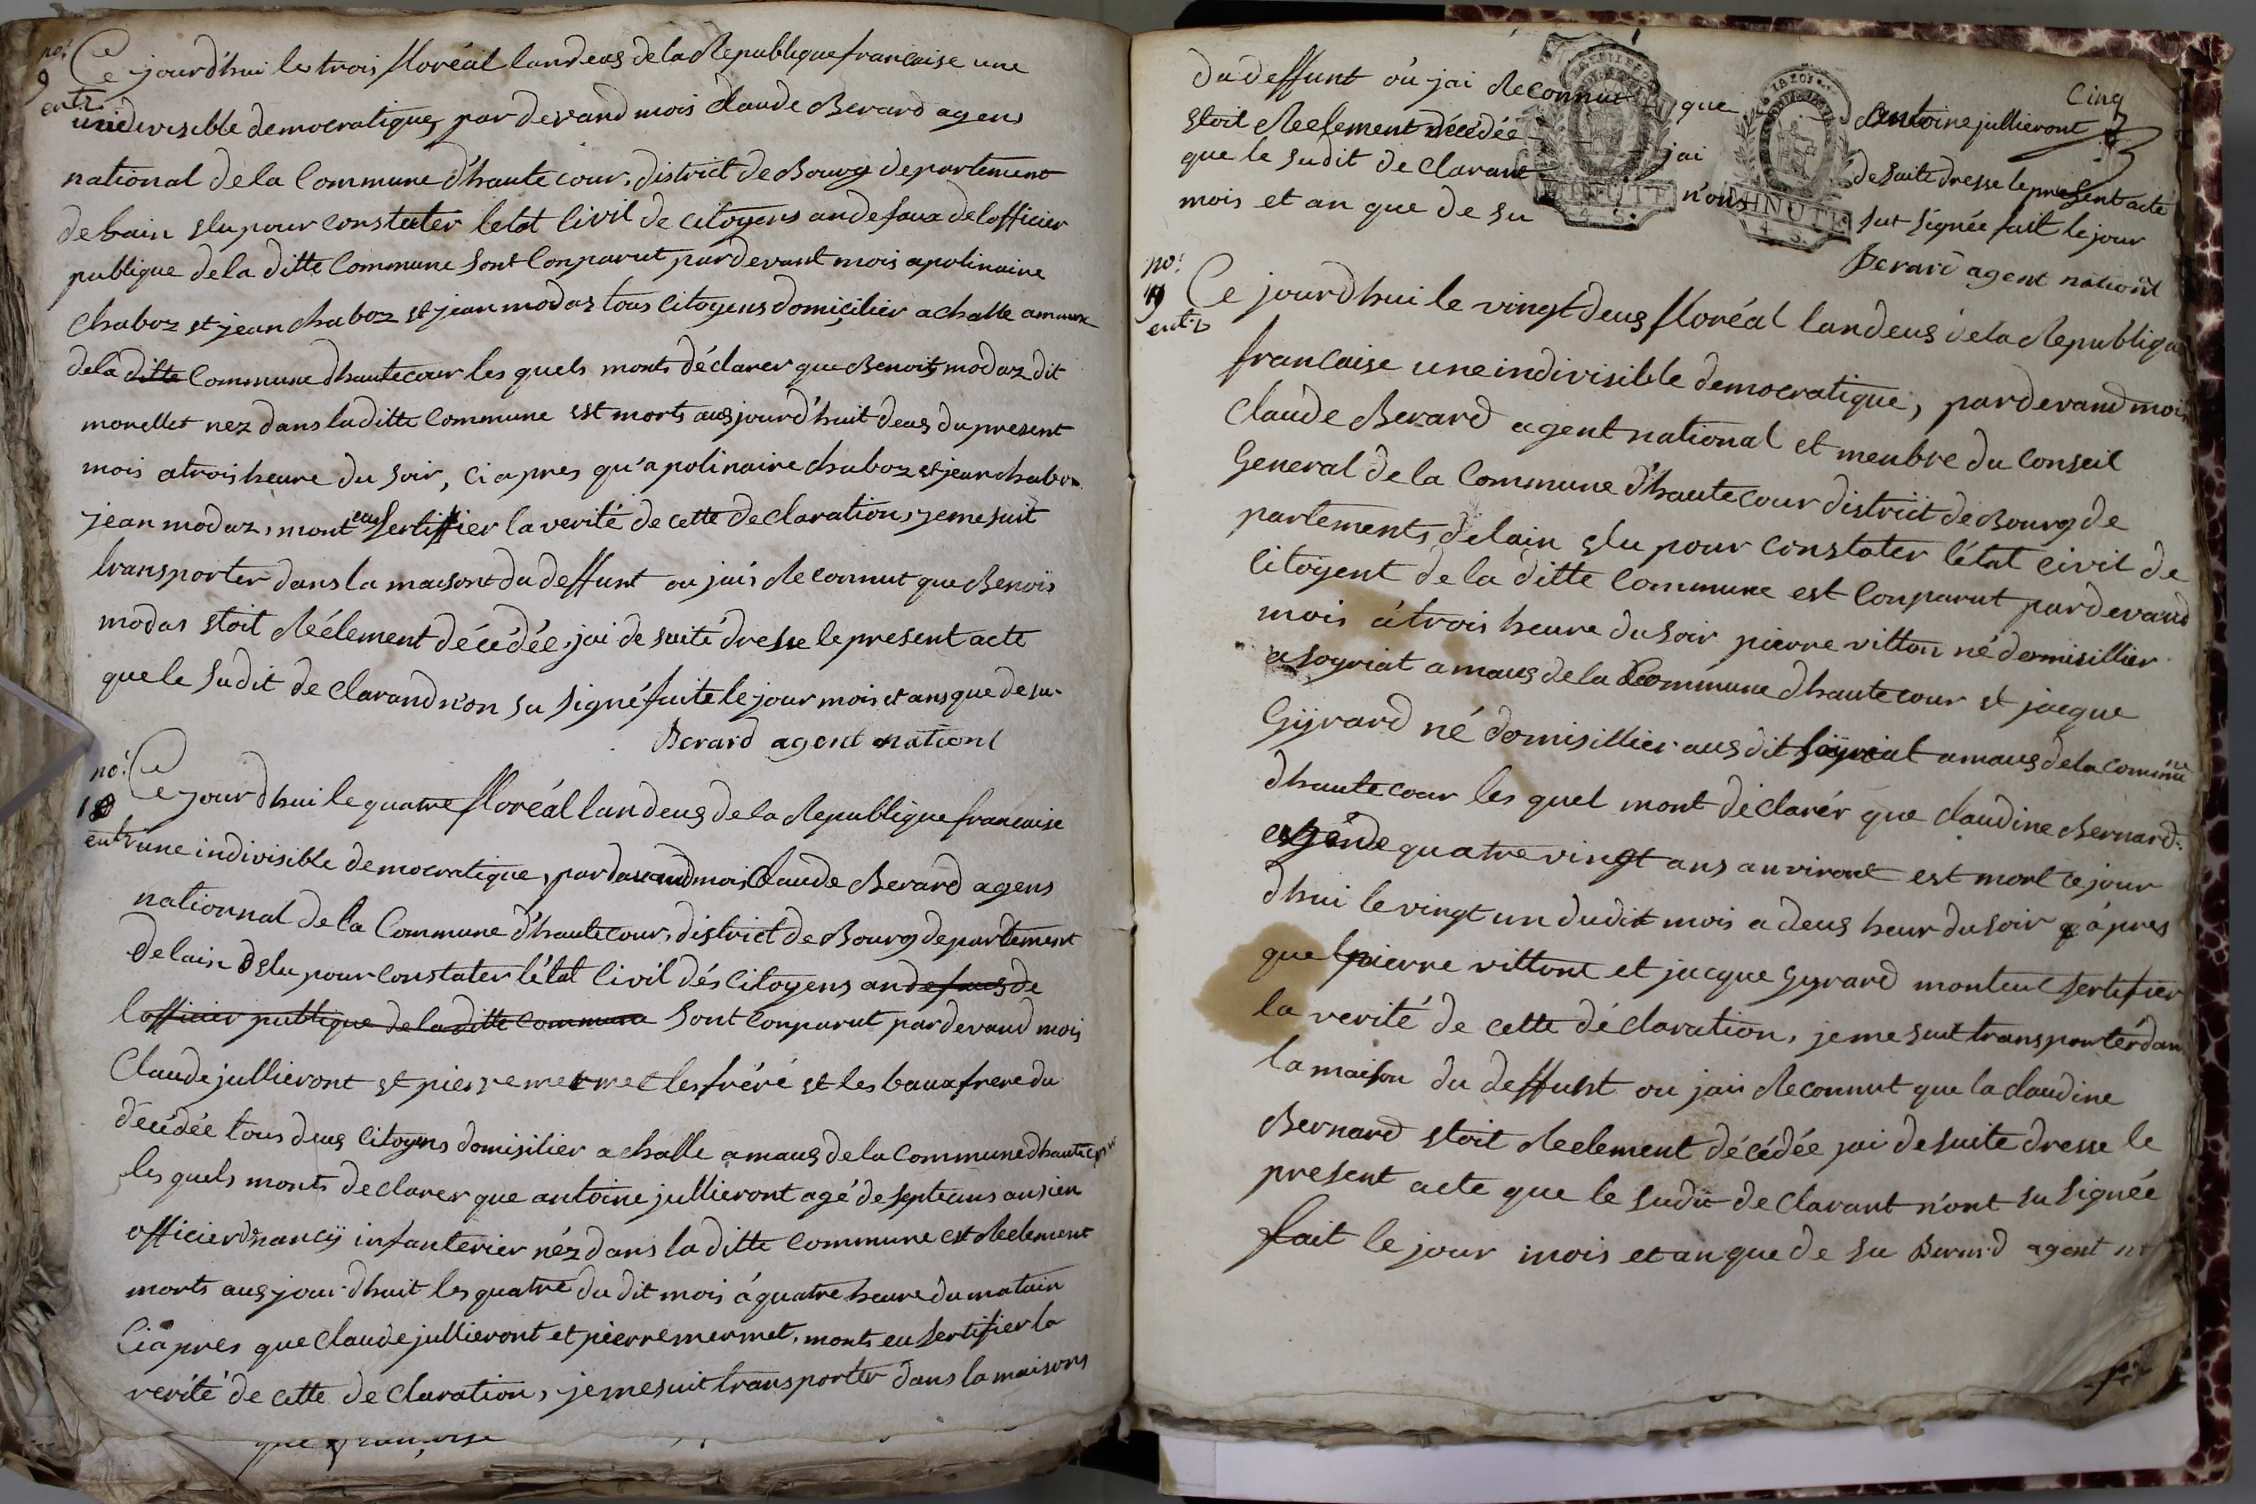 no.
9
entr.
Ce jourdhui les trois floréal landeus de la Republique francaise une
indivisible democratique, par devand mois Claude Berard agens
national de la Commune d'hautecour, district de Bourg departement
de lain elu pour constater letat Civil de citoyens an defaux de lofficier
publique de la ditte Commune sont Conparut par devant mois apolinaire
Chaboz et jean chaboz et jean modas tous Citoyens domicilier a challe amaux
de la ditte Commune dhautecour les quels monts déclarer que Benoit modaz dit
morellet nez dans la ditte Commune est morts ausjourd'huit deus du present
mois a trois heure du soir, Ci apres qu'apolinaire chaboz et jean chaboz
jean modaz, mont eu sertiffier la verité de cette declaration, je me suit
transporter dans la maisont du deffunt ou jais Reconnut que Benois
modas etoit Réelement décédée, jai de suite dresse le present acte
que le sudit de clarand n'on su signé faite le jour mois et ans que de su.
Berard agent nationl
no.
10
entr.
Ce jourdhui le quatre floréal landeus de la Republique francaise
une indivisible democratique, par devand mois Claude Berard agens
nationnal de la Commune d'hautecour, district de Bourg departement
de lain elu pour constater l'état Civil dés Citoyens an defaus de
lofficier publique de la ditte Commune sont Conparut par devand mois
Claude jullieront et pierre mermet les fréré et les baux frere du
décédée tous deus Citoyens domisilier a challe amaus de la Commune dhautecour
les quels monts declarer que antoine jullieront agé de septeans ansien
officier de nancÿ infanterier néz dans la ditte Commune est Reelement
morts aus jour dhuit les quatre du dit mois á quatre heure du matain
Ci apres que Claude jullieront et pierre mermet, monts eu sertifier la
verité de cette declaration, je me suit transporter dans la maisons
que francoise
Cinq
du deffunt où jai Reconnut que Antoine jullieront
etoit Reelement décédée jai de suite dresse le present acte
que le sudit de Clarant n'ons sut signée fait le jour
mois et an que de su
Berard agent nationl
MINUTE
MINUTE
no.
entr.
Ce jourdhui le vingt deus floréal landeus de la Republique
francaise une indivisible democratique, par devand mois
Claude Berard agent national et menbre du Conseil
General de la Commune d'hautecour district de Bourg de
partements de lain elu pour Constater l'état Civil de
Citoyent de la ditte Commune est Conparut par devand
mois á trois heure du soir pierre vitton né domisillier
a soyriat amaus de la Commune dhautecour et jacque
Gyrard né domisillier aus dit soÿriat amaus de la Commune
dhautecour les quel mont déclarér que Claudine Bernard
agé de quatre vingt ans anviront est mort ce jour
dhui le vingt un dudit mois a deus heur du soir ápres
que pierre vittont et jacque Gyrard monteut sertifier
la verité de cette déclaration, je me suit transportér dan
la maison du deffunt ou jais Reconnut que la Claudine
Bernard etoit Reelement décédée jai de suite dresse le
present acte que le sudit de Clarant n'ont su signée
fait le jour mois et an que de su Berard agent